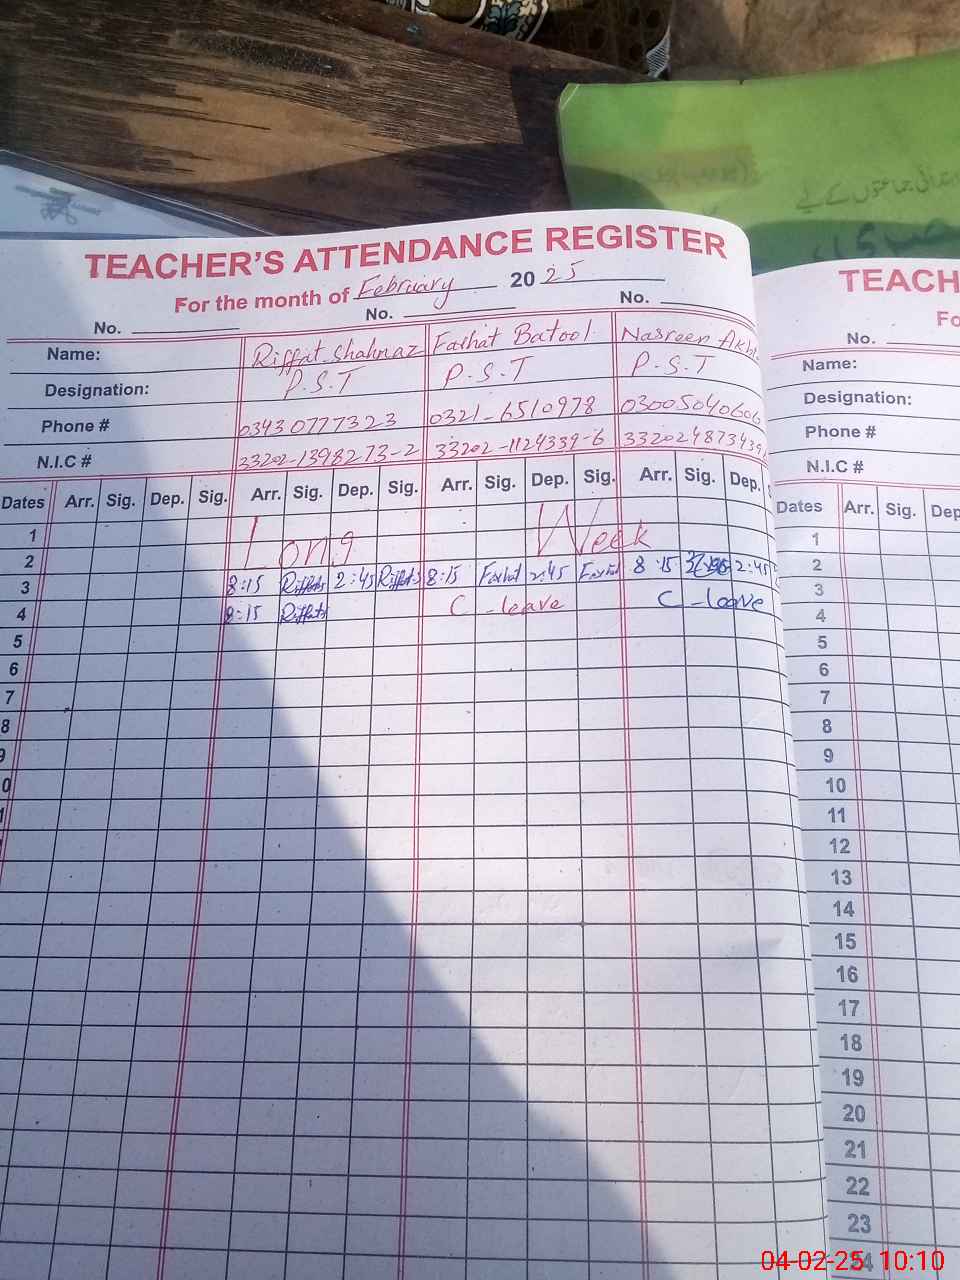 ابتدائی جماعتوں کے لیے
TEACHER'S ATTENDANCE REGISTER
For the month of February 2025
No. No. No.
Name: Riffat Shahnaz Farhat Batool Nasreen
Designation: P.S.T P.S.T P.S.T
Phone # 03430777323 0321-6510978 03005040606
N.I.C # 33202-1398273-2 33202-1124339-6 3320248734
Dates Arr. Sig. Dep. Sig. Arr. Sig. Dep. Sig. Arr. Sig. Dep. Sig. Arr. Sig. Dep.
1
2 Long Week
3 8:15 Riffat 2:45 Riffat 8:15 Farhat 2:45 Farhat 8:15 2:45
4 8:15 Riffat C-leave C-leave
5
6
7
8
9
0
1
TEACH
Fo
No.
Name:
Designation:
Phone #
N.I.C #
Dates Arr. Sig. Dep
1
2
3
4
5
6
7
8
9
10
11
12
13
14
15
16
17
18
19
20
21
22
23
24
04-02-25 10:10